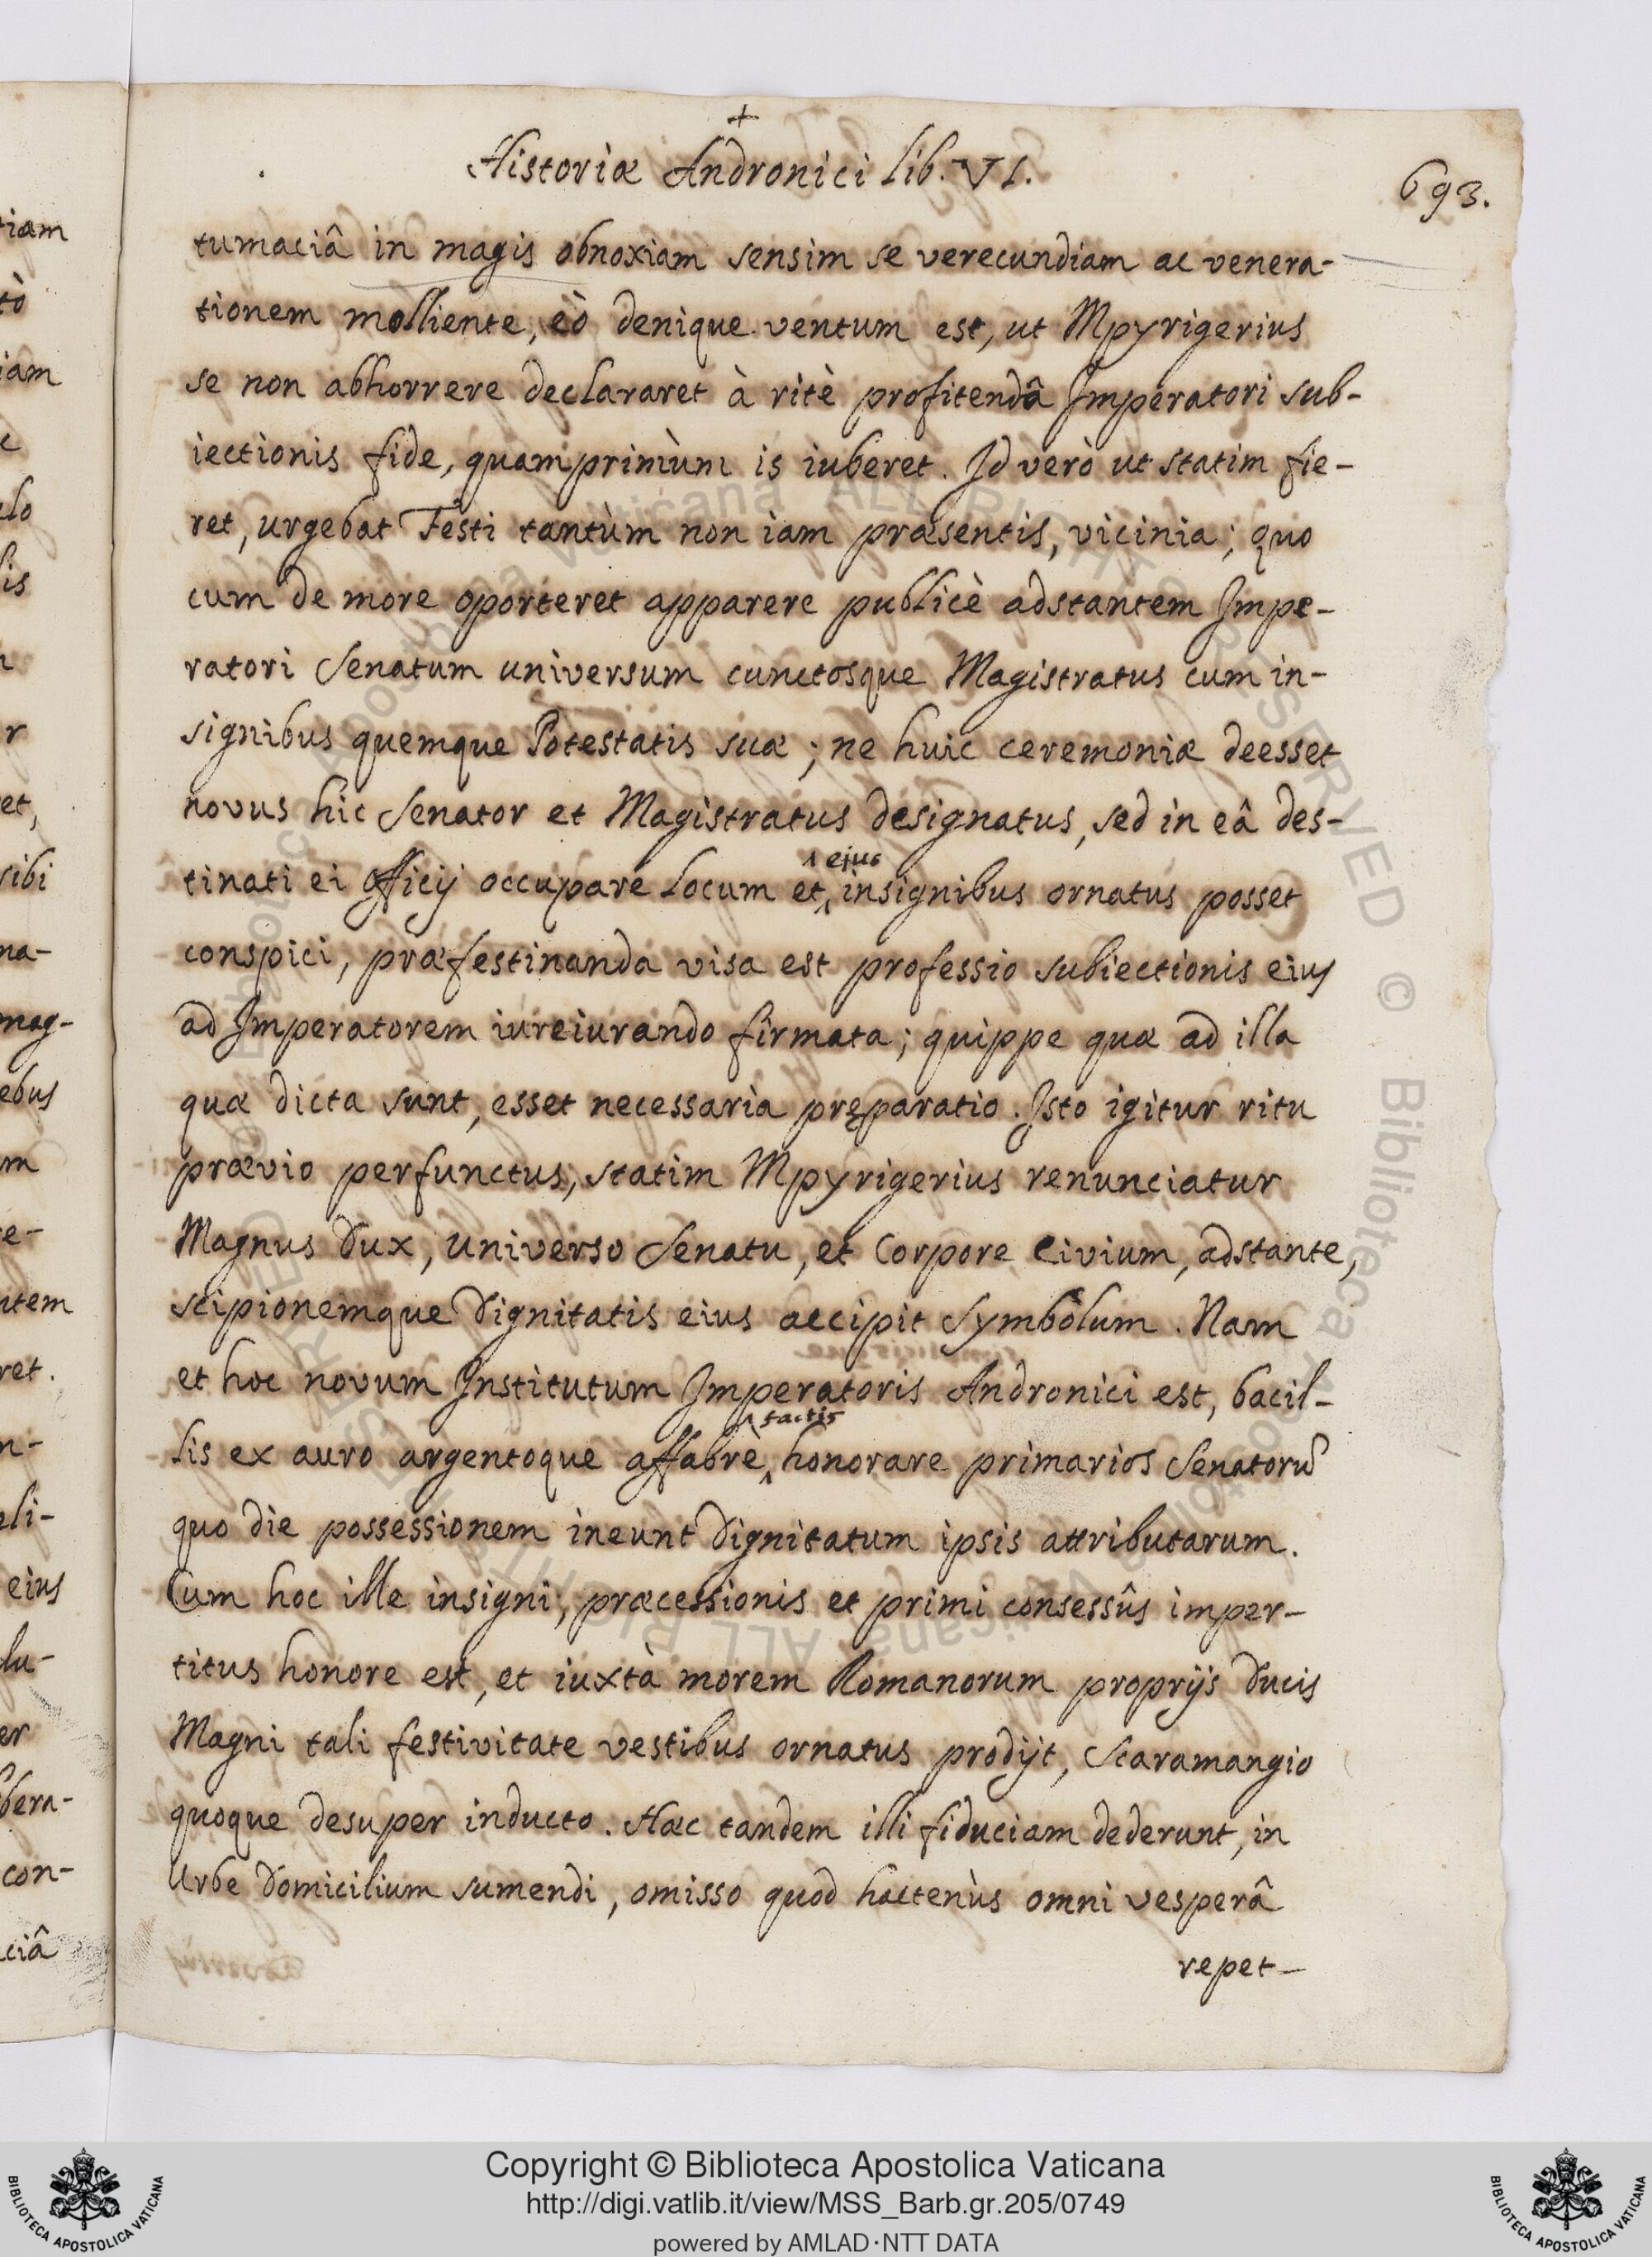 +
Historiæ Andronici lib. VI.
693.
tumaciâ in magis obnoxiam sensim se verecundiam ac venera-
tionem molliente, eò denique ventum est, ut Mpyrigerius
se non abhorrere declararet à ritè profitendâ Imperatori sub-
iectionis fide, quamprimùm is iuberet. Id verò ut statim fie-
ret, urgebat Festi tantùm non iam præsentis, vicinia; quo
cum de more oporteret apparere publicè adstantem Impe-
ratori Senatum universum cunctosque Magistratus cum in-
signibus quemque Potestatis suæ; ne huic ceremoniæ deesset
novus hic Senator et Magistratus designatus, sed in eâ des-
^ ejus
tinati ei officij occupare locum et^ insignibus ornatus posset
conspici, præfestinanda visa est professio subiectionis eius
ad Imperatorem iureiurando firmata; quippe quæ ad illa
quæ dicta sunt, esset necessaria pręparatio. Isto igitur ritu
prævio perfunctus, statim Mpyrigerius renunciatur
Magnus Dux, universo Senatu, et Corpore Civium, adstante,
scipionemque Dignitatis eius accipit Symbolum. Nam
et hoc novum Institutum Imperatoris Andronici est, bacil-
^ factis
lis ex auro argentoque affabrè^ honorare primarios Senatorũ
quo die possessionem ineunt Dignitatum ipsis attributarum.
Cum hoc ille insigni, præcessionis et primi consessûs imper-
titus honore est, et iuxtà morem Romanorum proprijs Ducis
Magni tali festivitate vestibus ornatus prodijt, Scaramangio
quoque desuper inducto. Hæc tandem illi fiduciam dederunt, in
Urbe Domicilium sumendi, omisso quod hactenùs omni vesperâ
repet-
tiam
tò
iam
sibi
na-
mag-
ebus
ntem
ret.
eius
bera-
con-
ciâ
Copyright © Biblioteca Apostolica Vaticana
http://digi.vatlib.it/view/MSS_Barb.gr.205/0749
powered by AMLAD·NTT DATA
BIBLIOTECA APOSTOLICA VATICANA
BIBLIOTECA APOSTOLICA VATICANA